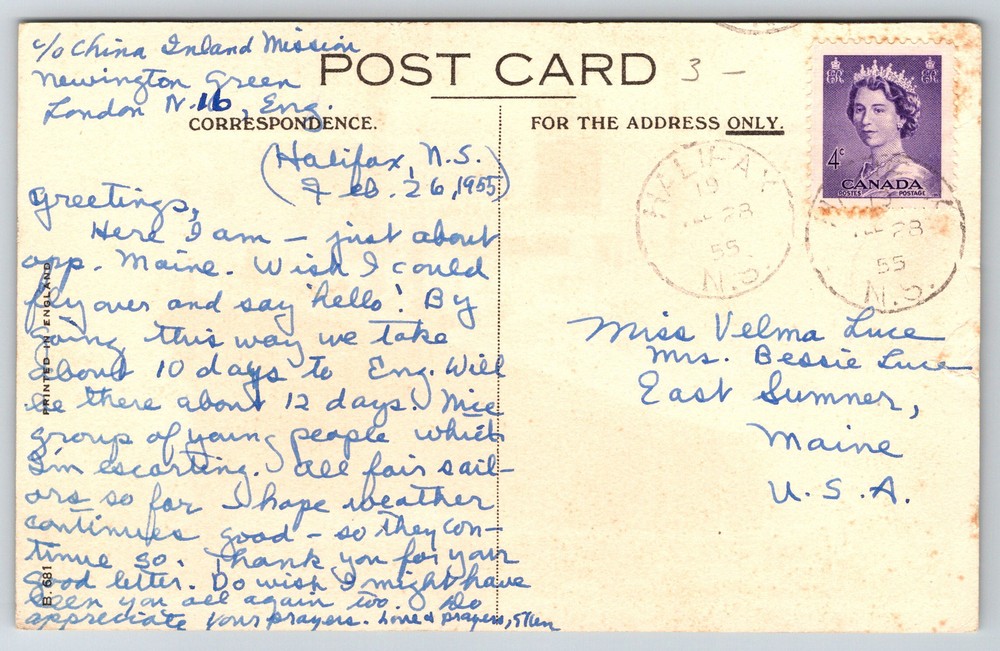 c/o China Inland Mission
Newington Green
London N.16, Eng.
POST CARD
3 –
CORRESPONDENCE.
FOR THE ADDRESS ONLY.
(Halifax, N.S.)
(Feb. 26, 1955)
Greetings,
Here I am – just about
opp. Maine. Wish I could
fly over and say 'hello'! By
going this way we take
about 10 days to Eng. Will
be there about 12 days. Nice
group of young people which
I'm escorting. All fair sail-
ors so far I hope weather
continues good – so they con-
tinue so. Thank you for your
good letter. Do wish I might have
seen you all again too. Do
appreciate your prayers. Love & prayers,
PRINTED IN ENGLAND
B. 681
ER
ER
4c
CANADA
POSTES POSTAGE
HALIFAX
19
28
55
N.S.
19
28
55
N.S.
Miss Velma Luce
Mrs. Bessie Luce
East Sumner,
Maine
U.S.A.